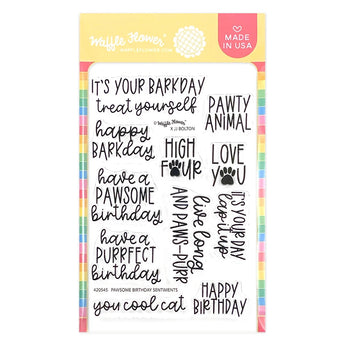 Waffle Flower
WAFFLEFLOWER.COM
MADE IN USA
IT'S YOUR BARKDAY
treat yourself
Waffle Flower
X JJ BOLTON
PAWTY
ANIMAL
happy
BARKday
HIGH
FOUR
LOVE
YOU
have a
PAWSOME
birthday
live long
AND PAWS-PURR
IT'S YOUR DAY
lap it up
have a
PURRFECT
birthday
420545 PAWSOME BIRTHDAY SENTIMENTS
you cool cat
HAPPY
BIRTHDAY